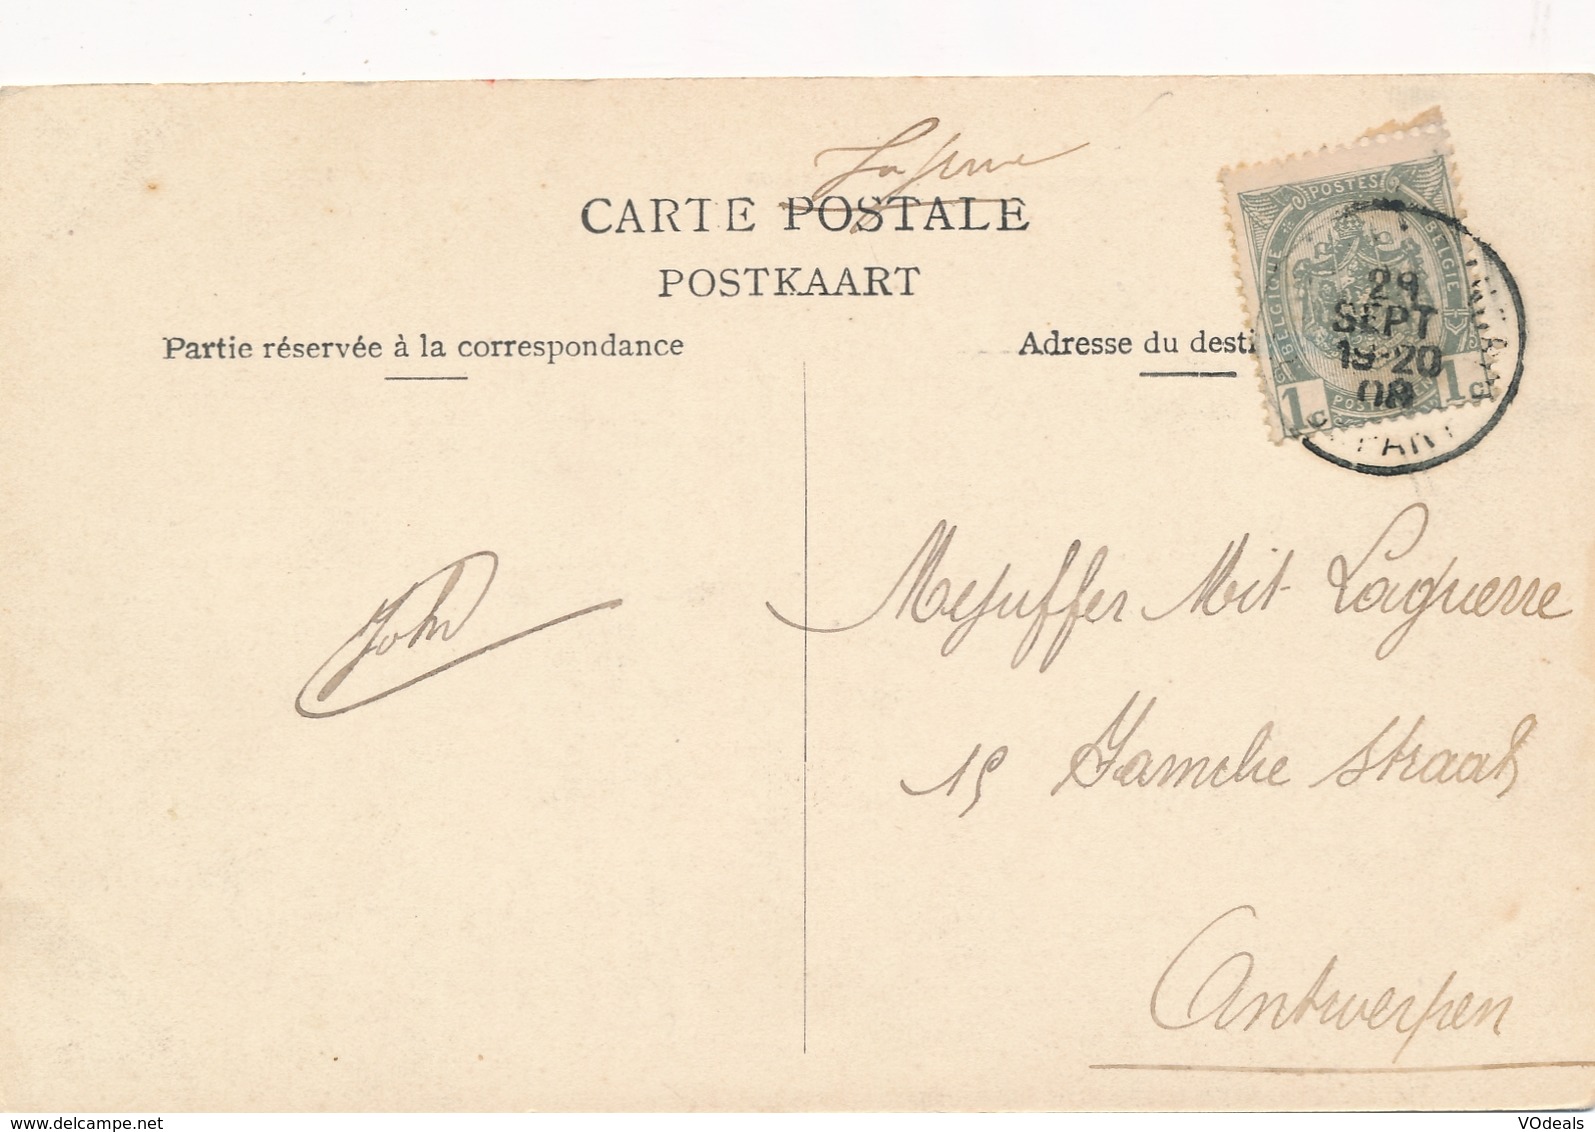 CARTE POSTALE
POSTKAART
Partie réservée à la correspondance
Adresse du desti
POSTES
BELGIQUE BELGIE
1c 1c
29
SEPT
19-20
08
John
Mejuffer Mit Laguerre
15 straat
Antwerpen
www.delcampe.net
VOdeals